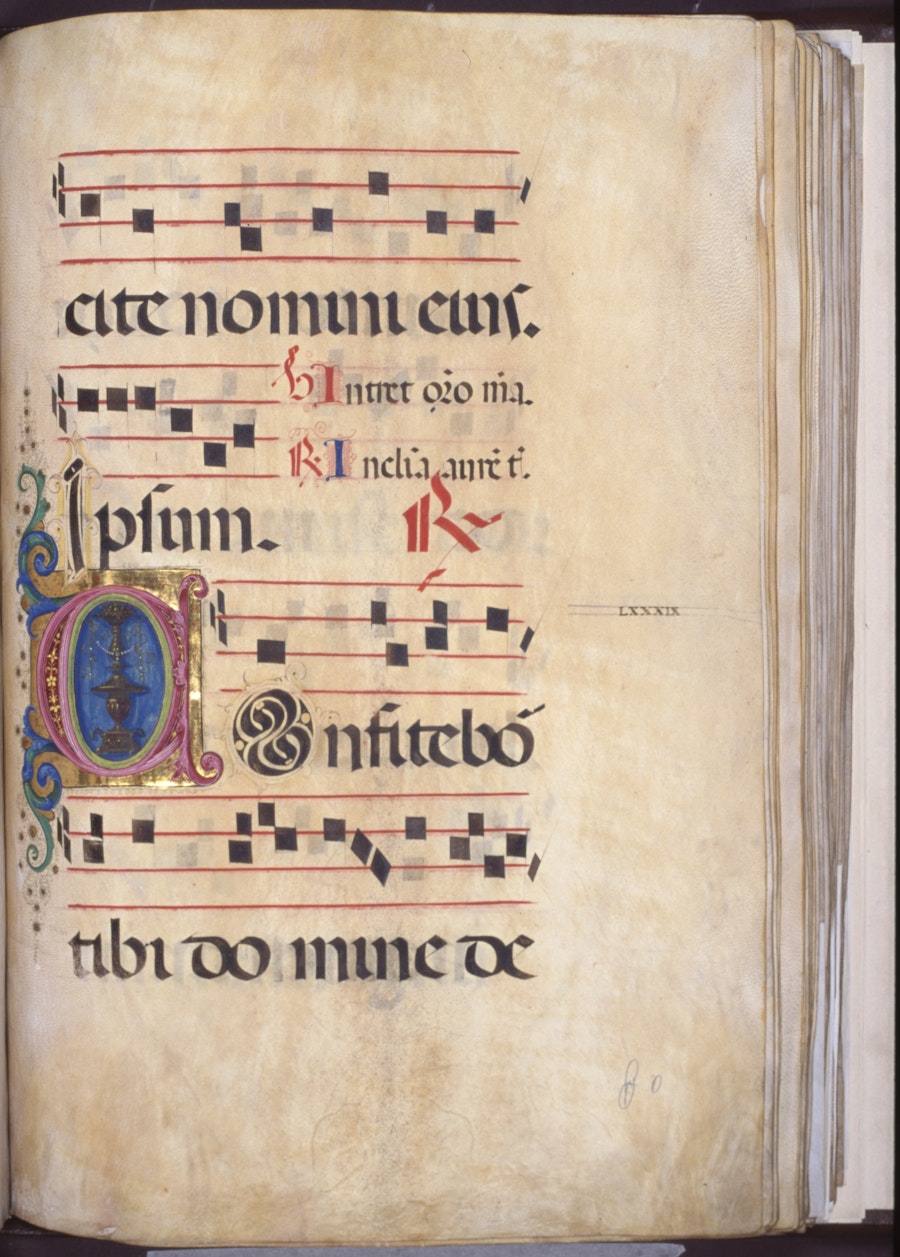 cite nomini eius.
℣ Intret or̄o m̄a.
℟. Inclīa aurē t̄.
Ipsum. ℟
LXXXIX
Confitebō
tibi do mine de
80